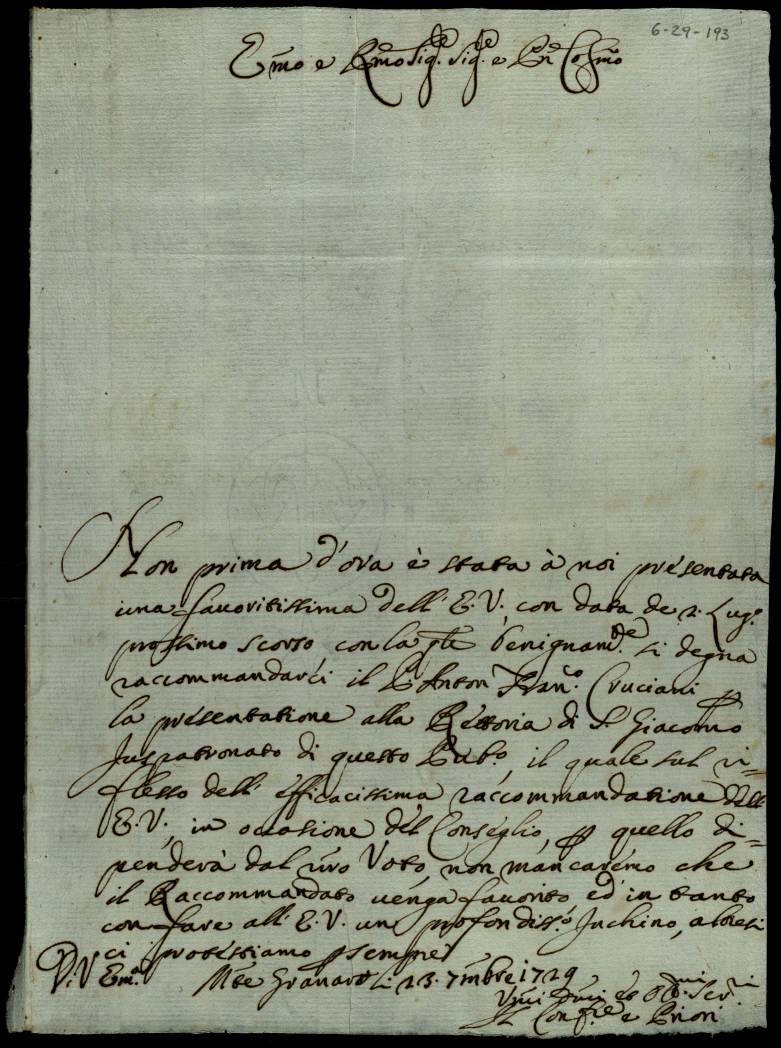 6-29-193
Emo e Rmo Sig.re Sig.re e Pne Colmo
Non prima d'ora è stata à noi presentata
una favoritissima dell' E. V. con data de 2. Lug.o
prossimo scorso con la qle benignam.te si degna
raccommandarci il Anton Fran.o Cruciani p
la presentatione alla Rettoria di S. Giacomo
Juspatronato di questo Pub.o, il quale sul ri=
flesso dell' efficacissima raccommandatione dell'
E. V., in occasione del Conseglio, p quello di=
penderà dal nro Voto, non mancaremo che
il Raccommandato venga favorito, ed in tanto
con fare all' E. V. un profondiss.o Inchino,
ci protestiamo p sempre
D. V. Em.a Mte Granaro li 23. 7mbre 1729
Ser.ri
Il Conf.re e Priori